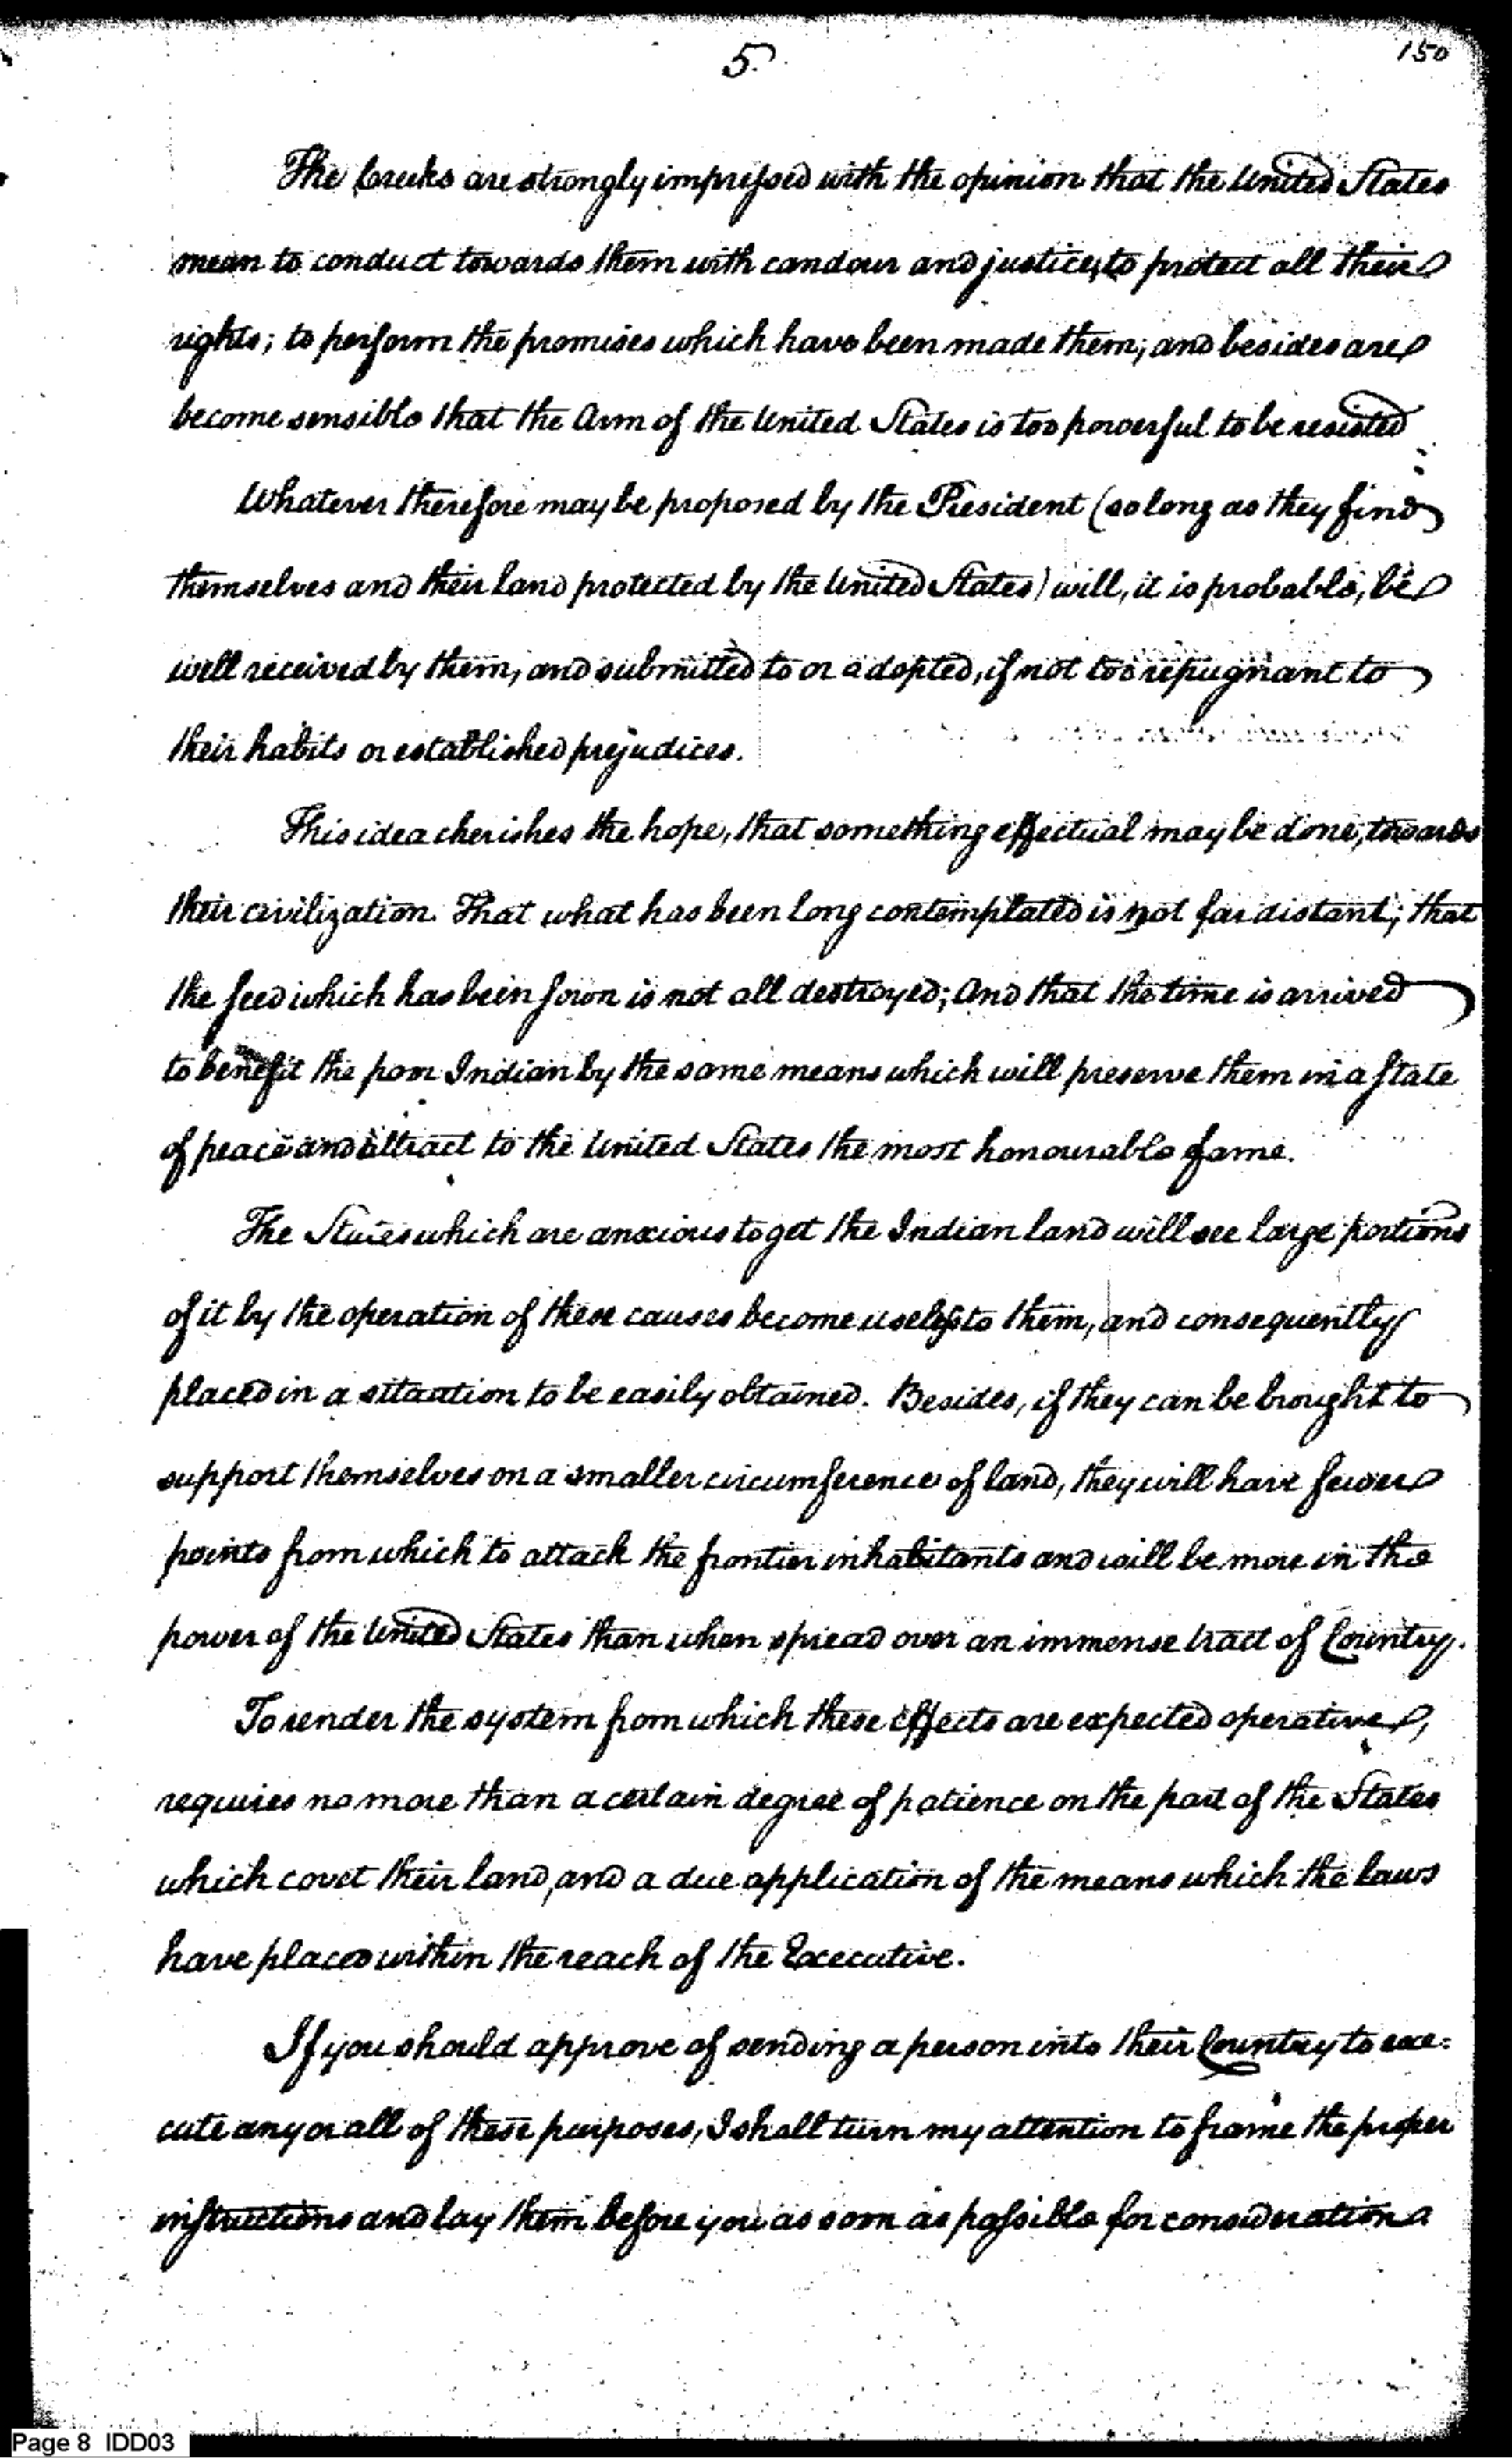 5.
150
The Creeks are strongly impressed with the opinion that the United States
mean to conduct towards them with candour and justice, to protect all their
rights; to perform the promises which have been made them; and besides are
become sensible that the Arm of the United States is too powerful to be resisted
Whatever therefore may be proposed by the President (so long as they find
themselves and their land protected by the United States) will, it is probable, be
well received by them, and submitted to or adopted, if not too repugnant to
their habits or established prejudices.
This idea cherishes the hope, that something effectual may be done, towards
their civilization. That what has been long contemplated is not far distant; that
the seed which has been sown is not all destroyed; And that the time is arrived
to benefit the poor Indian by the same means which will preserve them in a State
of peace and attract to the United States the most honourable fame.
The States which are anxious to get the Indian land will see large portions
of it by the operation of these causes become useless to them, and consequently
placed in a situation to be easily obtained. Besides, if they can be brought to
support themselves on a smaller circumference of land, they will have fewer
points from which to attack the frontier inhabitants and will be more in the
power of the United States than when spread over an immense tract of Country.
To render the system from which these effects are expected operative,
requires no more than a certain degree of patience on the part of the States
which covet their land, and a due application of the means which the laws
have placed within the reach of the Executive.
If you should approve of sending a person into their Country to exe=
cute any or all of these purposes, I shall turn my attention to frame the proper
instructions and lay them before you as soon as possible for consideration
Page 8 IDD03